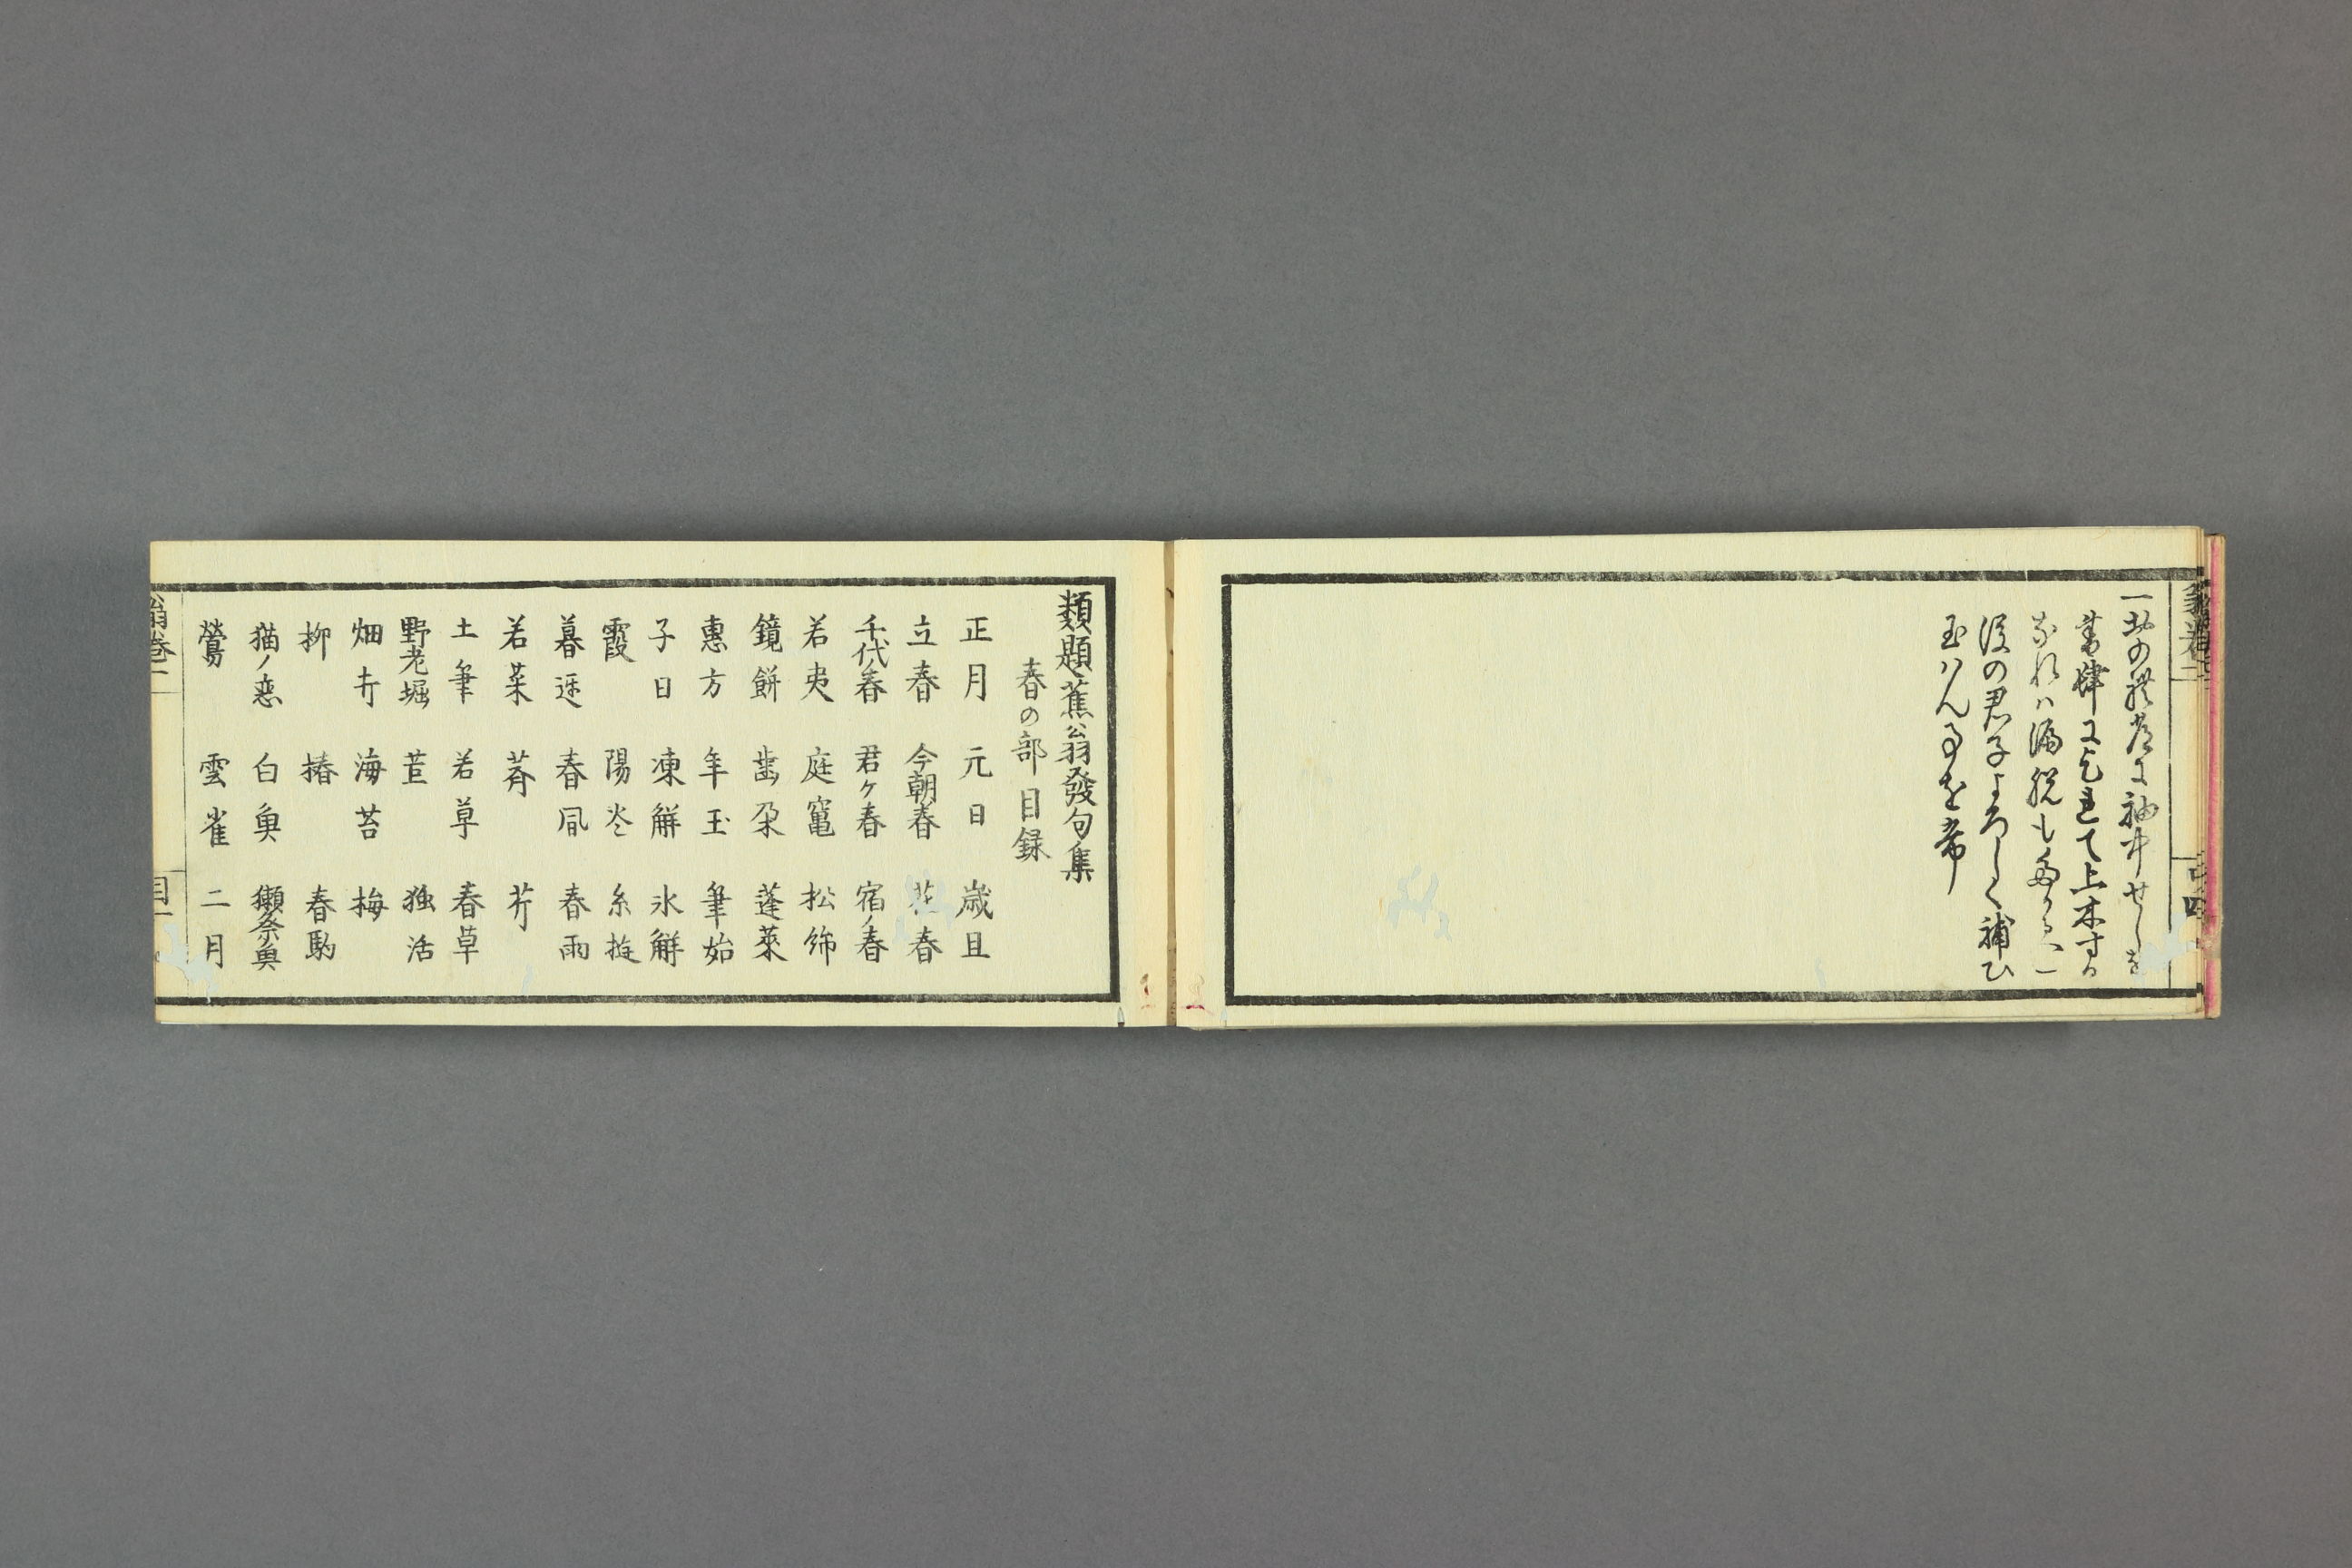 一此の
書肆に乞れて上木する
なれハ漏脱も多かるへし
後の君子よろしく補ひ
玉ハん事を希
類題蕉翁發句集
春の部目録
正月 元日 歳旦
立春 今朝春 花春
千代ノ春 君ヶ春 宿ノ春
若夷 庭竈 松餝
鏡餅 歯朶 蓬莱
惠方 年玉 筆始
子日 凍解 氷解
霞 陽炎 糸遊
暮遅 春風 春雨
若菜 薺 芹
土筆 若草 春草
野老堀 苣 独活
畑打 海苔 梅
柳 椿 春駒
猫ノ恋 白魚 獺祭魚
鶯 雲雀 二月
翁巻一
目一